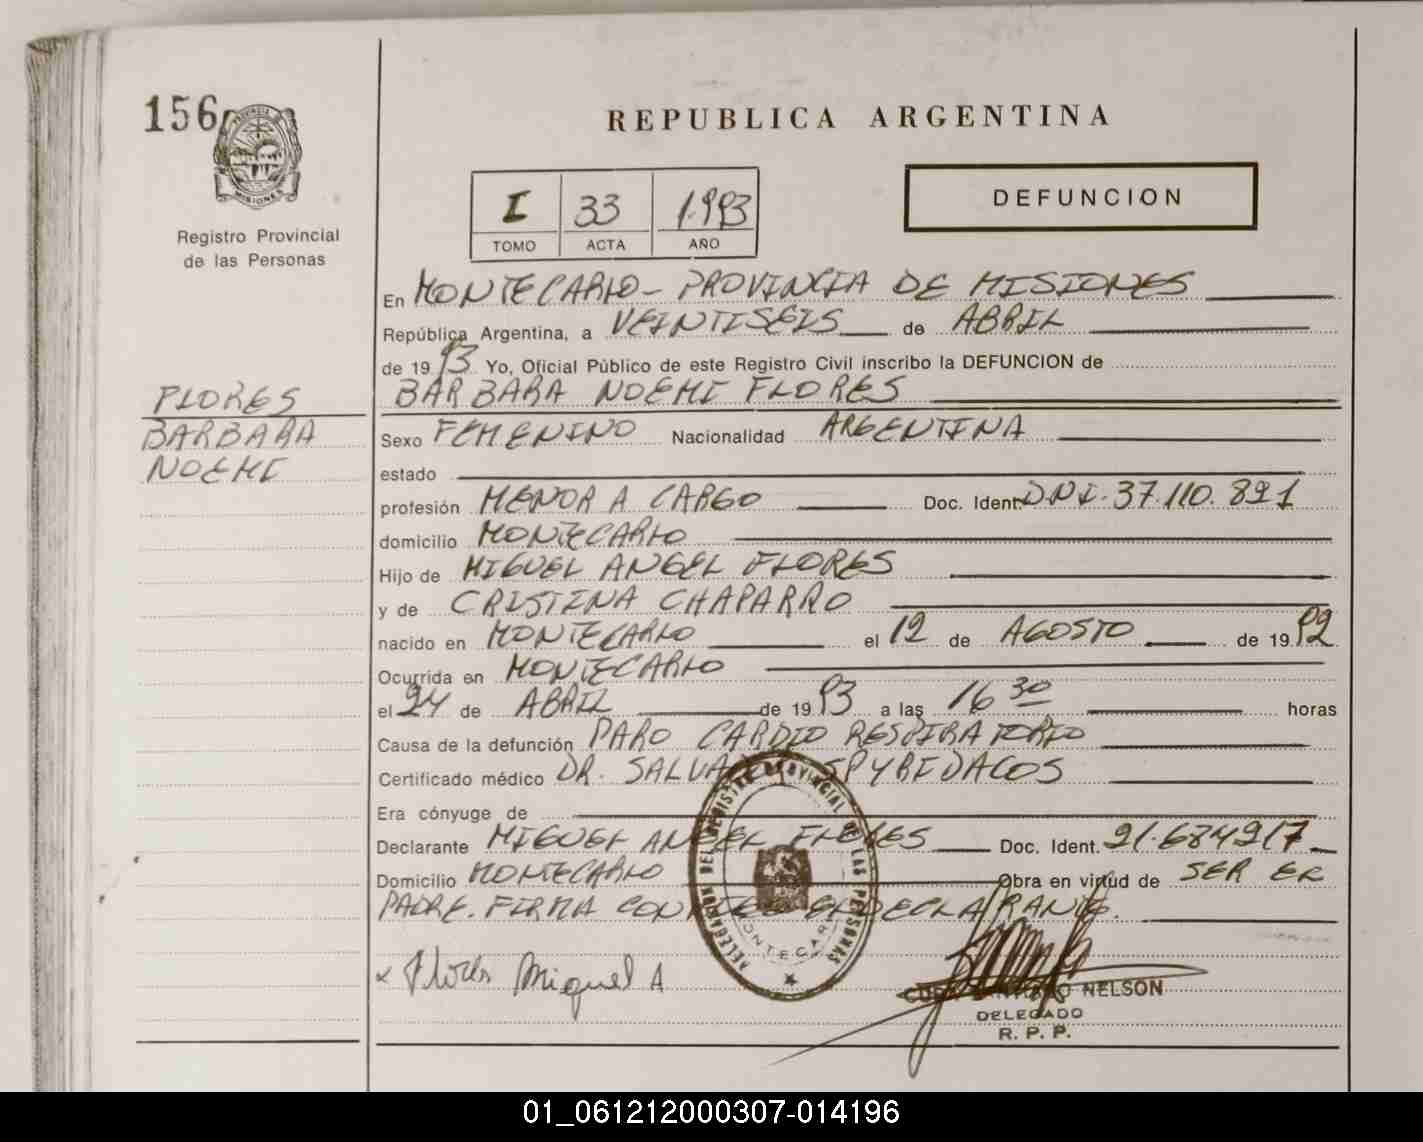 156
PROVINCIA DE
MISIONES
Registro Provincial
de las Personas
REPUBLICA ARGENTINA
I 33 1.993
TOMO ACTA AÑO
DEFUNCION
En MONTECARLO - PROVINCIA DE MISIONES
República Argentina, a VEINTISEIS de ABRIL
de 19 93 Yo, Oficial Público de este Registro Civil inscribo la DEFUNCION de
BARBARA NOEMI FLORES
FLORES
BARBARA
NOEMI
Sexo FEMENINO Nacionalidad ARGENTINA
estado
profesión MENOR A CARGO Doc. Ident. D.N.I. 37.110.891
domicilio MONTECARLO
Hijo de MIGUEL ANGEL FLORES
y de CRISTINA CHAPARRO
nacido en MONTECARLO el 12 de AGOSTO de 19 92
Ocurrida en MONTECARLO
el 24 de ABRIL de 19 93 a las 16 30 horas
Causa de la defunción PARO CARDIO RESPIRATORIO
Certificado médico DR. SPYBIDACOS
Era cónyuge de
Declarante MIGUEL ANGEL FLORES Doc. Ident. 21.684917
Domicilio MONTECARLO Obra en virtud de SER EL
PADRE. FIRMA CONMIGO EL DECLARANTE.
DELEGACION DEL REGISTRO PROVINCIAL DE LAS PERSONAS
MONTECARLO
x Flores Miguel A
NELSON
DELEGADO
R. P. P.
01_061212000307-014196